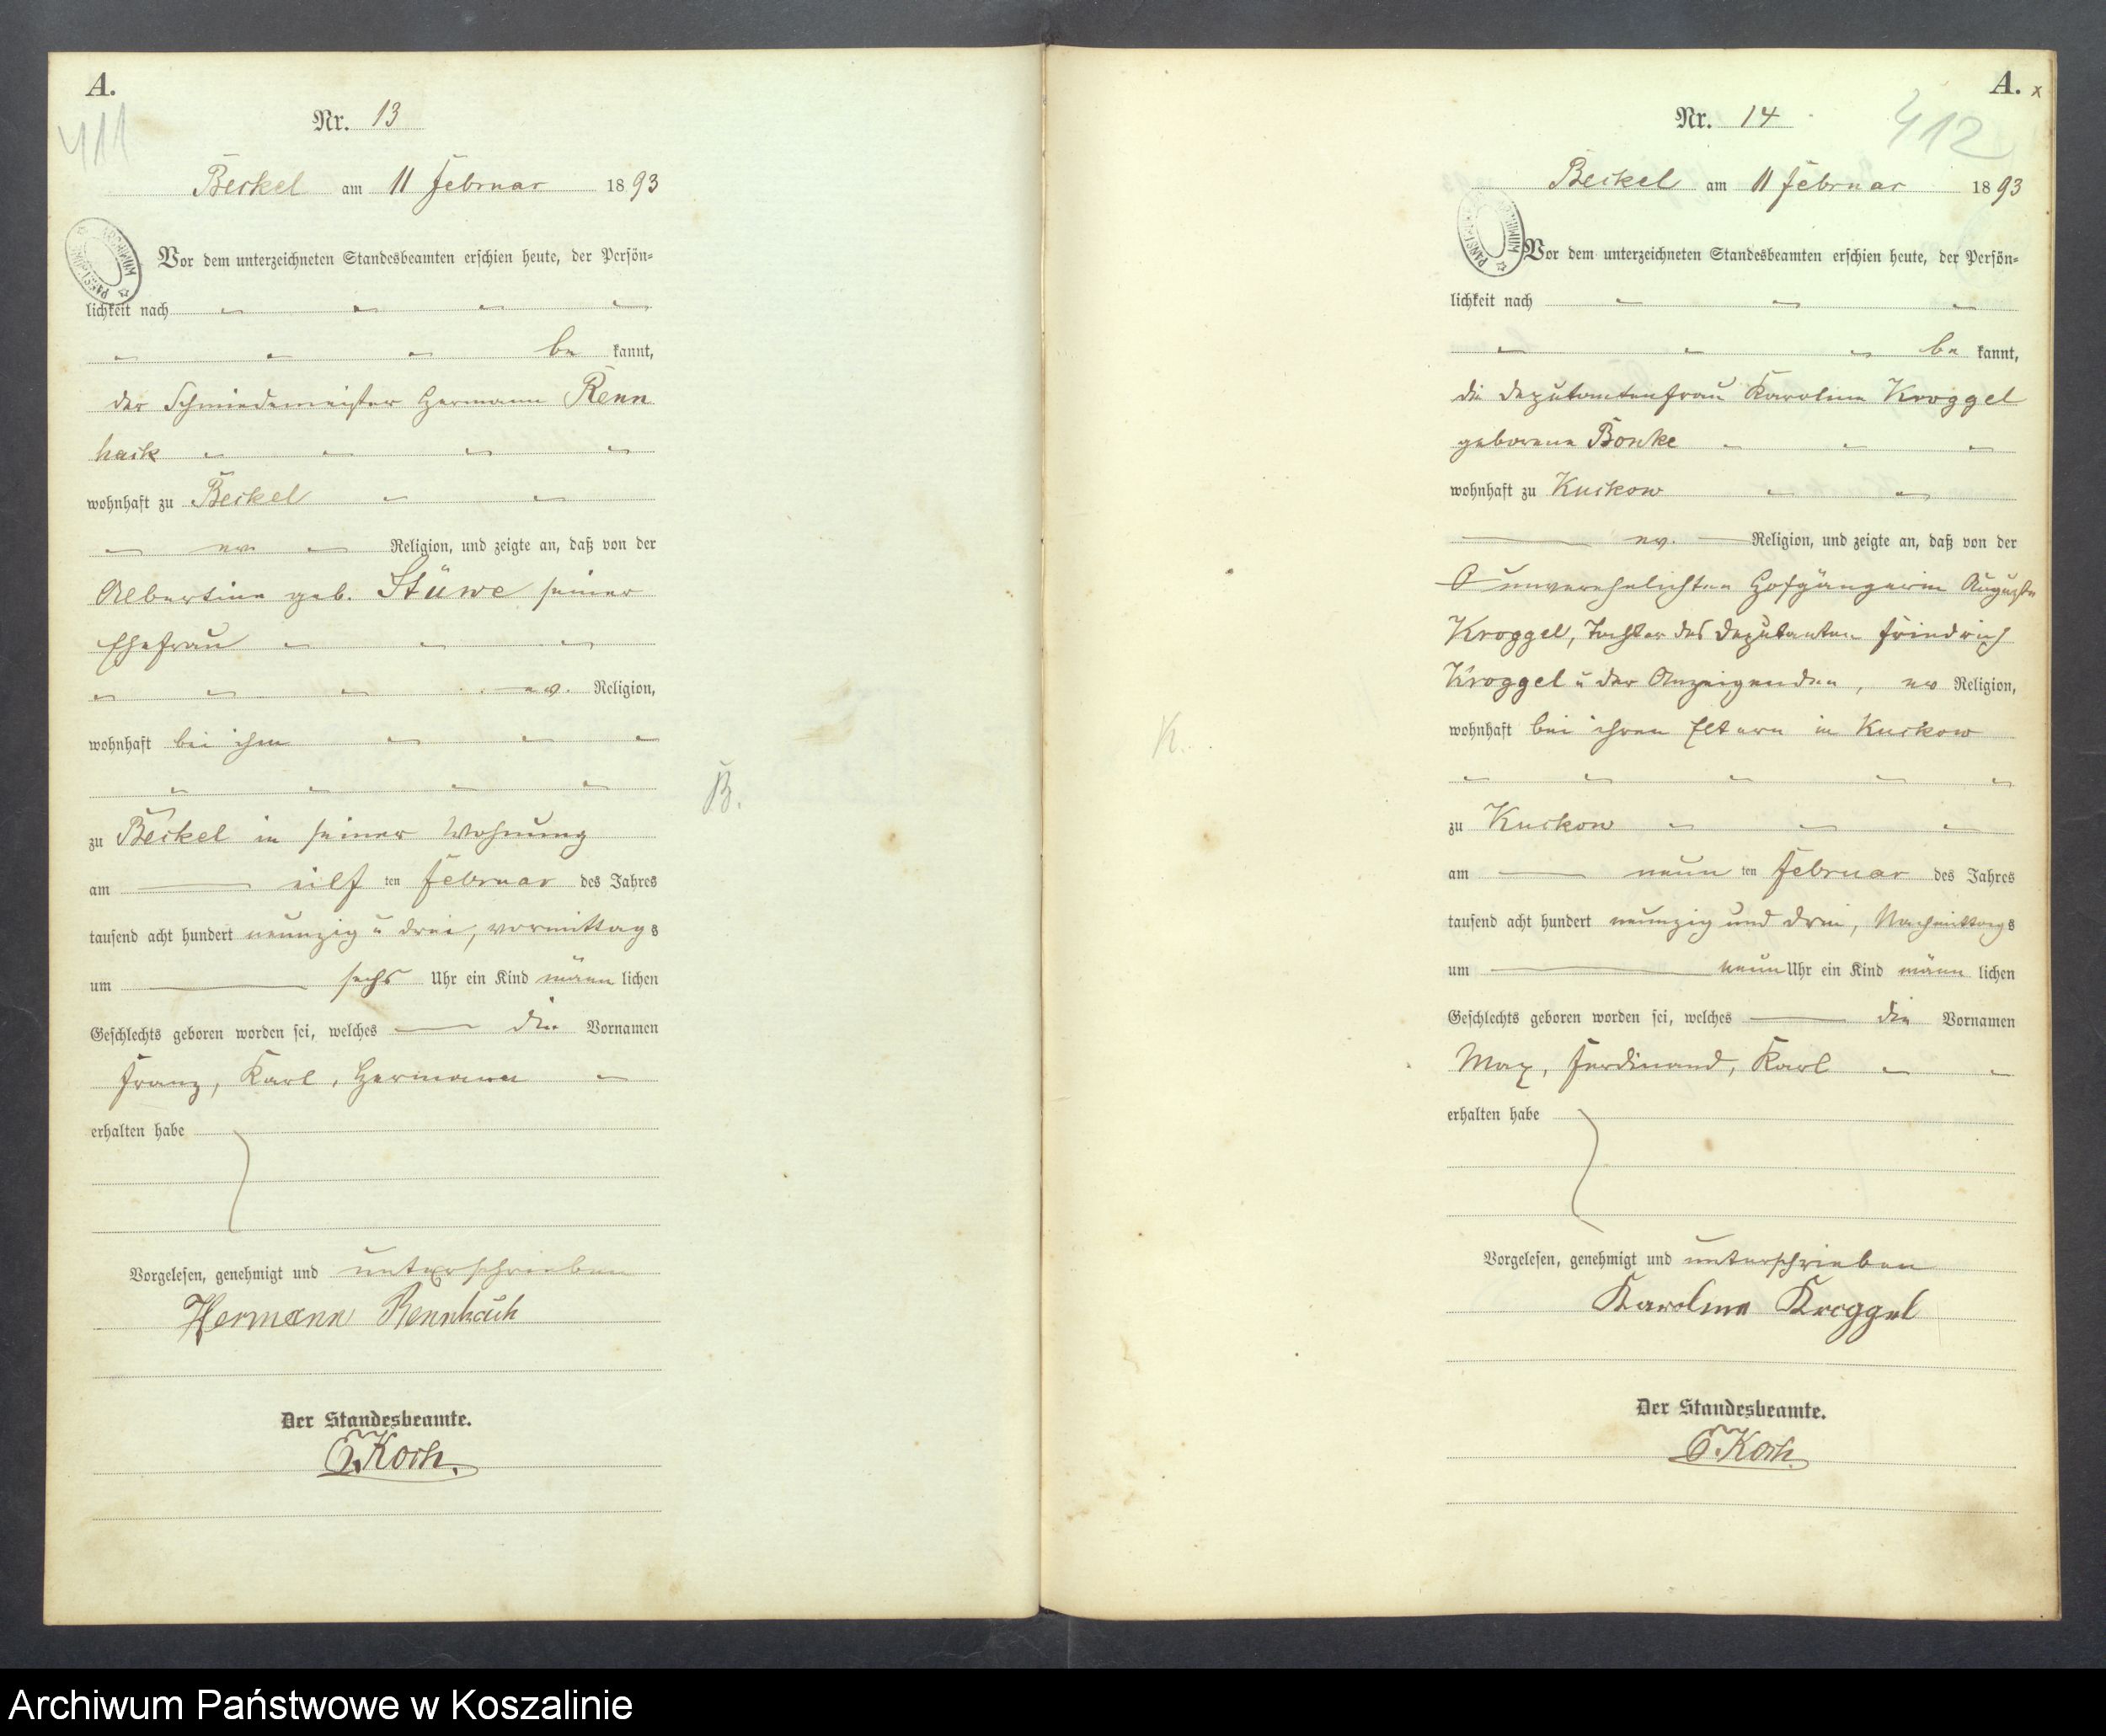 A.
411
Nr. 13
Beckel am 11 Februar 1893
Vor dem unterzeichneten Standesbeamten erschien heute, der Persön=
lichkeit nach
be kannt,
der Schmiedemeister Hermann Renn
hack
wohnhaft zu Beckel
ev. Religion, und zeigte an, daß von der
Albertine geb. Stüwe seiner
Ehefrau
ev. Religion,
wohnhaft bei ihm
B.
zu Beckel in seiner Wohnung
am eilf ten Februar des Jahres
tausend acht hundert neunzig u drei, vormittags
um sechs Uhr ein Kind männ lichen
Geschlechts geboren worden sei, welches die Vornamen
Franz, Karl, Hermann
erhalten habe
Vorgelesen, genehmigt und unterschrieben
Hermann Rennhack
Der Standesbeamte.
Koch.
A. x
412
Nr. 14
Beckel am 11 Februar 1893
Vor dem unterzeichneten Standesbeamten erschien heute, der Persön=
lichkeit nach
be kannt,
die Deputantenfrau Karoline Kroggel
geborene Bonke
wohnhaft zu Kuckow
ev. Religion, und zeigte an, daß von der
unverehelichten Hofgängerin Auguste
Kroggel, Tochter des Deputanten Friedrich
Kroggel u der Anzeigenden, ev Religion,
wohnhaft bei ihren Eltern in Kuckow
K.
zu Kuckow
am neun ten Februar des Jahres
tausend acht hundert neunzig und drei, Nachmittags
um neun Uhr ein Kind männ lichen
Geschlechts geboren worden sei, welches die Vornamen
Max, Ferdinand, Karl
erhalten habe
Vorgelesen, genehmigt und unterschrieben
Karoline Kroggel
Der Standesbeamte.
Koch.
Archiwum Państwowe w Koszalinie